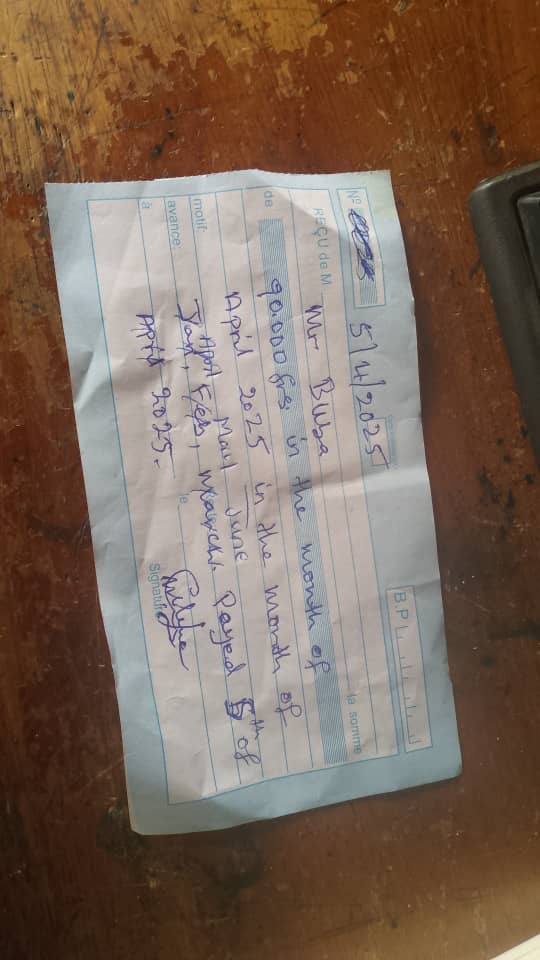 Nº 5/4/2025
B.P
REÇU de M Mr Bwsa la somme
de 90.000 frs in the month of
April 2025 in the month of
May June
motif: April
Jan, Feb, March. Payed 5th of
avance:
à April 2025. le
Signature